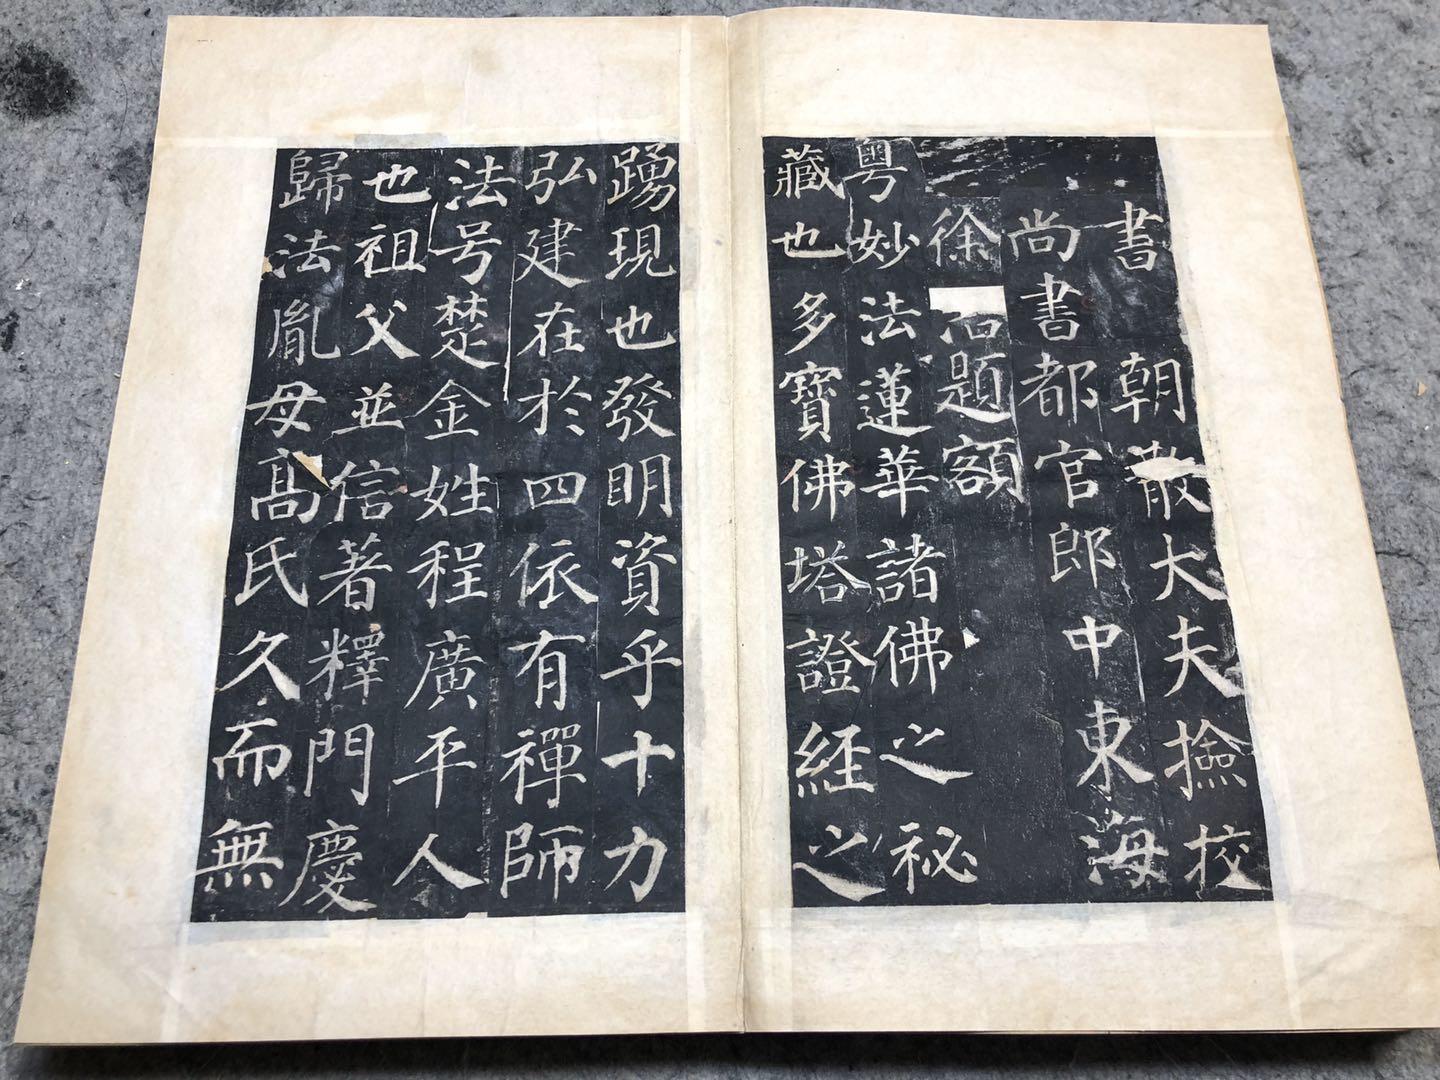 書 朝散大夫撿校
尚書都官郎中東海
徐題額
粵妙法蓮華諸佛之祕
藏也多寶佛塔證經之
踴現也發明資乎十力
弘建在於四依有禪師
法号楚金姓程廣平人
也祖父並信著釋門慶
歸法胤母髙氏久而無